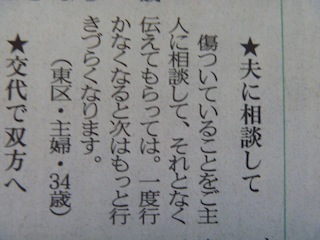 ★夫に相談して
傷ついていることをご主
人に相談して、それとなく
伝えてもらっては。一度行
かなくなると次はもっと行
きづらくなります。
（東区・主婦・34歳）
★交代で双方へ